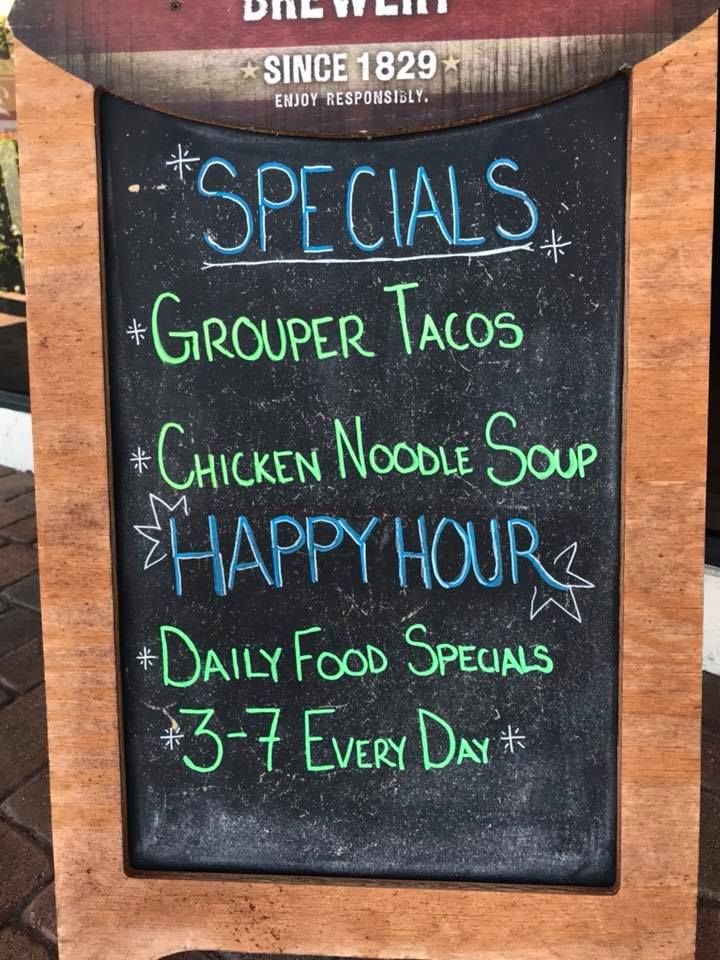 BREWERY
SINCE 1829
ENJOY RESPONSIBLY.
SPECIALS
* GROUPER TACOS
* CHICKEN NOODLE SOUP
HAPPY HOUR
* DAILY FOOD SPECIALS
* 3-7 EVERY DAY *